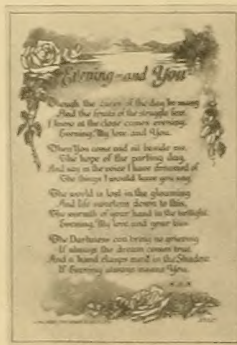 Evening and You
Though the cares of the day be many
And the fruits of the struggle few,
I know at the close comes evening,
Evening, My love and You.
Then You come and sit beside me,
The hope of the parting day,
And say in the voice I have dreamed of
The things I would have you say.
The world is lost in the gloaming
And life narrows down to this,
The warmth of your hand in the twilight,
Evening, My love and your kiss.
The Darkness can bring no grieving
If always the dream comes true
And a hand clasps mine in the Shadow
If Evening always means You.